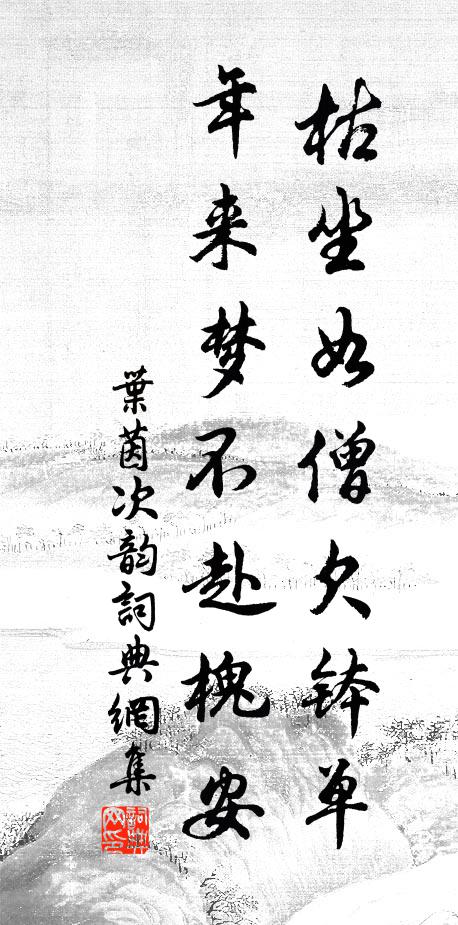 枯坐如僧欠钵单
年来梦不赴槐安
葉茵次韵詞典網集